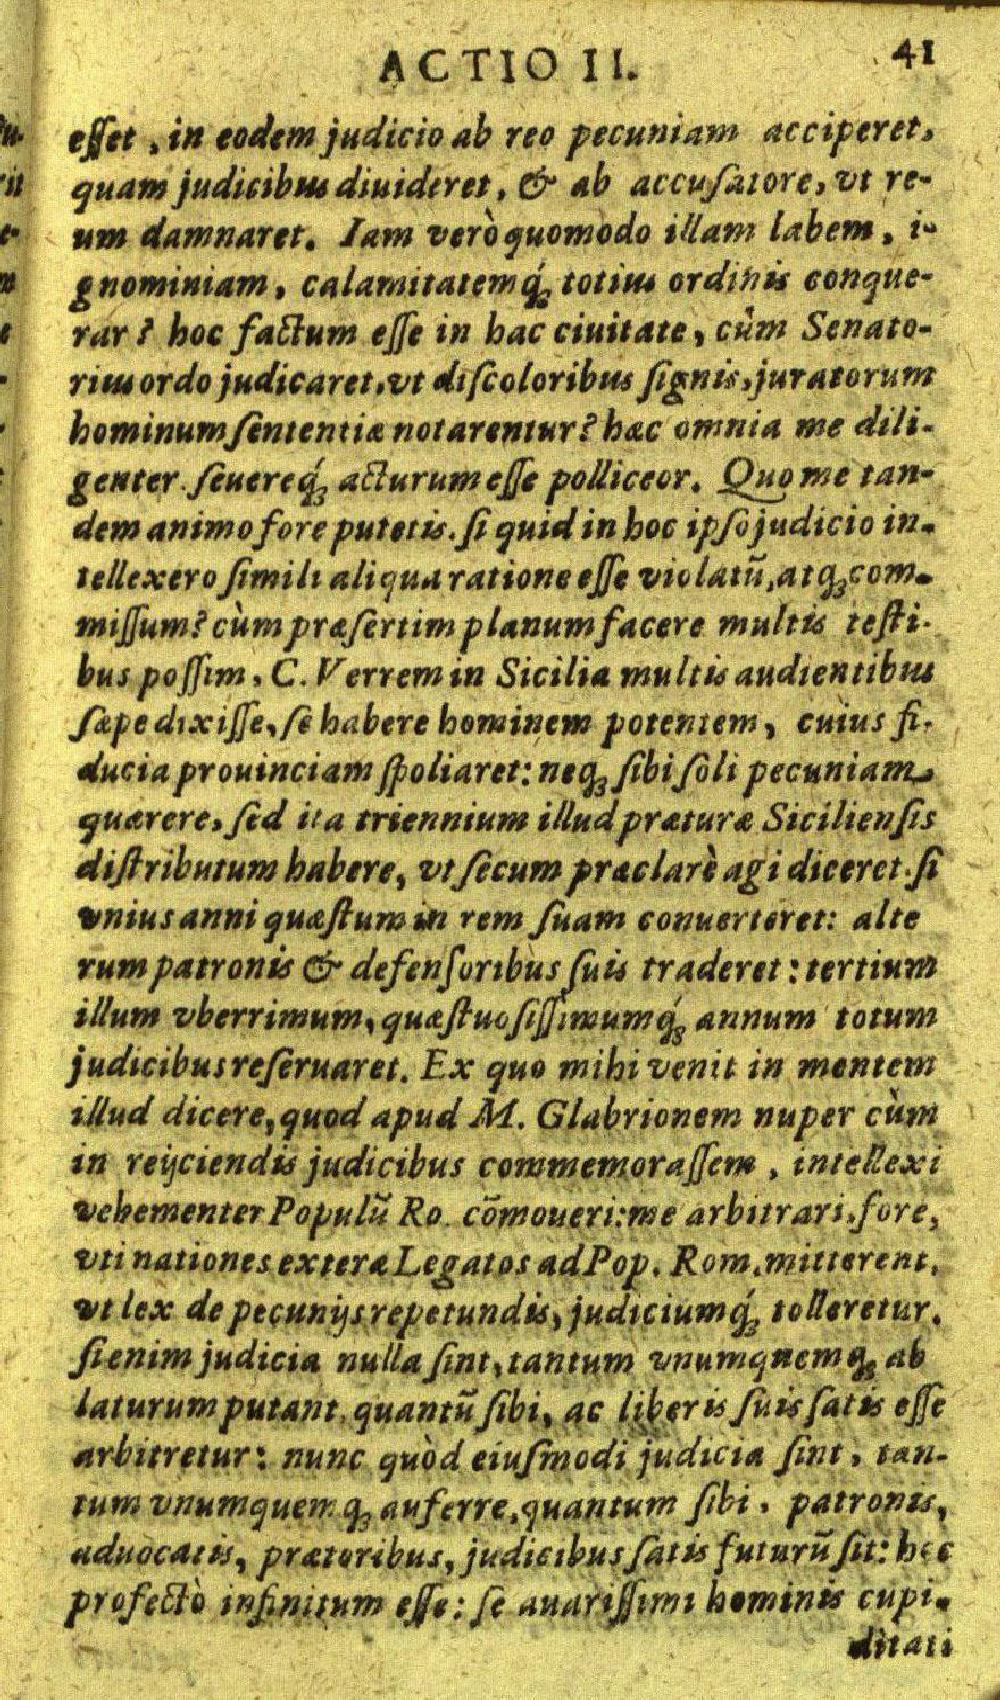 ACTIO II. 41
esset, in eodem judicio ab reo pecuniam acciperet,
quam judicibus diuideret, & ab accusatore, vt re-
um damnaret. Iam verò quomodo illam labem, i-
gnominiam, calamitatemq́; totius ordinis conque-
rar? hoc factum esse in hac ciuitate, cùm Senato-
rius ordo judicaret, vt discoloribus signis, juratorum
hominum sententiæ notarentur? hæc omnia me dili-
genter. seuereq́; acturum esse polliceor. Quo me tan-
dem animo fore putetis. si quid in hoc ipso judicio in-
tellexero simili aliqua ratione esse violatũ, atq; com-
missum? cùm præsertim planum facere multis testi-
bus possim, C. Verrem in Sicilia multis audientibus
sæpe dixisse, se habere hominem potentem, cuius fi-
ducia prouinciam spoliaret: neq; sibi soli pecuniam
quærere, sed ita triennium illud præturæ Siciliensis
distributum habere, vt secum præclarè agi diceret. si
vnius anni quæstum in rem suam conuerteret: alte
rum patronis & defensoribus suis traderet: tertium
illum vberrimum, quæstuosissimumq́; annum totum
judicibus reseruaret. Ex quo mihi venit in mentem
illud dicere, quod apud M. Glabrionem nuper cùm
in reijciendis judicibus commemorassem, intellexi
vehementer Populũ Ro. cõmoueri: me arbitrari, fore,
vti nationes exteræ Legatos ad Pop. Rom. mitterent,
vt lex de pecunijs repetundis, judiciumq́; tolleretur.
si enim judicia nulla sint, tantum vnumquemq; ab
laturum putant, quantũ sibi, ac liberis suis satis esse
arbitretur: nunc quòd eiusmodi judicia sint, tan-
tum vnumquemq; auferre, quantum sibi, patronis,
aduocatis, prætoribus, judicibus satis futurũ sit: hoc
profectò infinitum esse: se auarissimi hominis cupi-
ditati